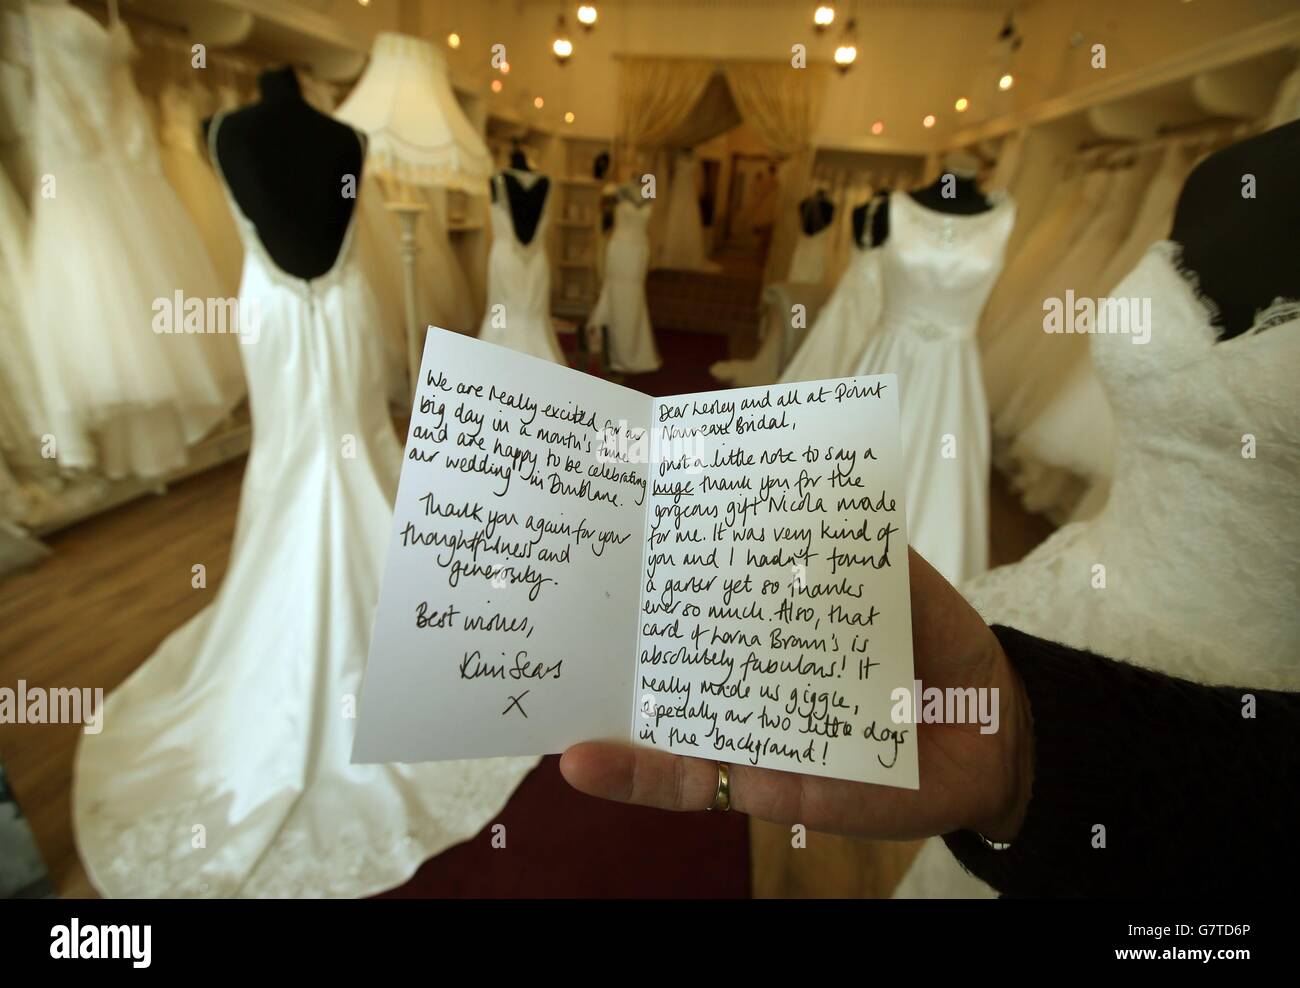 Dear Lesley and all at Point
Nouveau Bridal,
Just a little note to say a
huge thank you for the
gorgeous gift Nicola made
for me. It was very kind of
you and I hadn't found
a garter yet so thanks
ever so much. Also, that
card of Lorna Brown's is
absolutely fabulous! It
really made us giggle,
especially our two little dogs
in the background!
We are really excited for our
big day in a month's time
and are happy to be celebrating
our wedding in Dunblane.
Thank you again for your
thoughtfulness and
generosity.
Best wishes,
Kim Sears
X
alamy
alamy
Image ID: G7TD6P
www.alamy.com